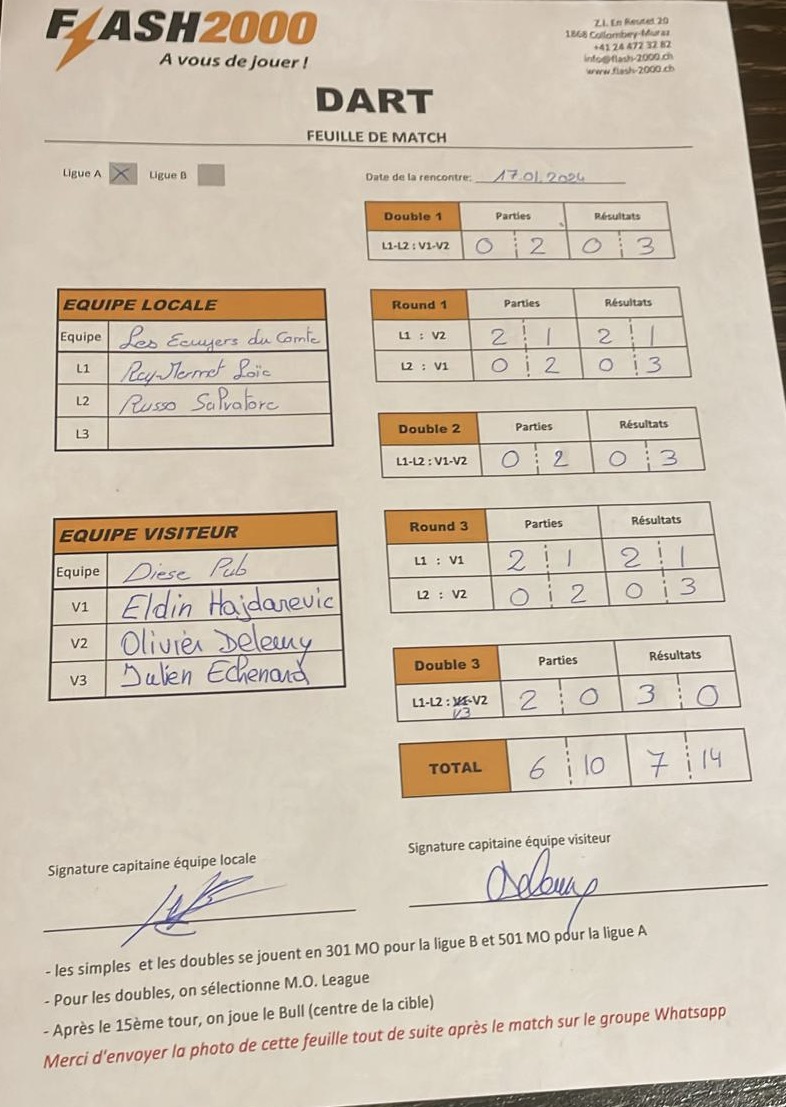 FLASH2000
A vous de jouer !
Z.I. En Reutet 20
1868 Collombey-Muraz
+41 24 472 32 82
info@flash-2000.ch
www.flash-2000.ch
DART
FEUILLE DE MATCH
Ligue A X Ligue B
Date de la rencontre: 17.01.2024
Double 1 Parties Résultats
L1-L2 : V1-V2 0 2 0 3
EQUIPE LOCALE
Equipe Les Ecuyers du Comte
L1 Rey-Mermet Loïc
L2 Russo Salvatore
L3
Round 1 Parties Résultats
L1 : V2 2 1 2 1
L2 : V1 0 2 0 3
Double 2 Parties Résultats
L1-L2 : V1-V2 0 2 0 3
EQUIPE VISITEUR
Equipe Diese Pub
V1 Eldin Hajdarevic
V2 Olivier Deleury
V3 Julien Echenard
Round 3 Parties Résultats
L1 : V1 2 1 2 1
L2 : V2 0 2 0 3
Double 3 Parties Résultats
L1-L2 : V1-V2 2 0 3 0
V3
TOTAL 6 10 7 14
Signature capitaine équipe locale
Signature capitaine équipe visiteur
- les simples et les doubles se jouent en 301 MO pour la ligue B et 501 MO pour la ligue A
- Pour les doubles, on sélectionne M.O. League
- Après le 15ème tour, on joue le Bull (centre de la cible)
Merci d'envoyer la photo de cette feuille tout de suite après le match sur le groupe Whatsapp